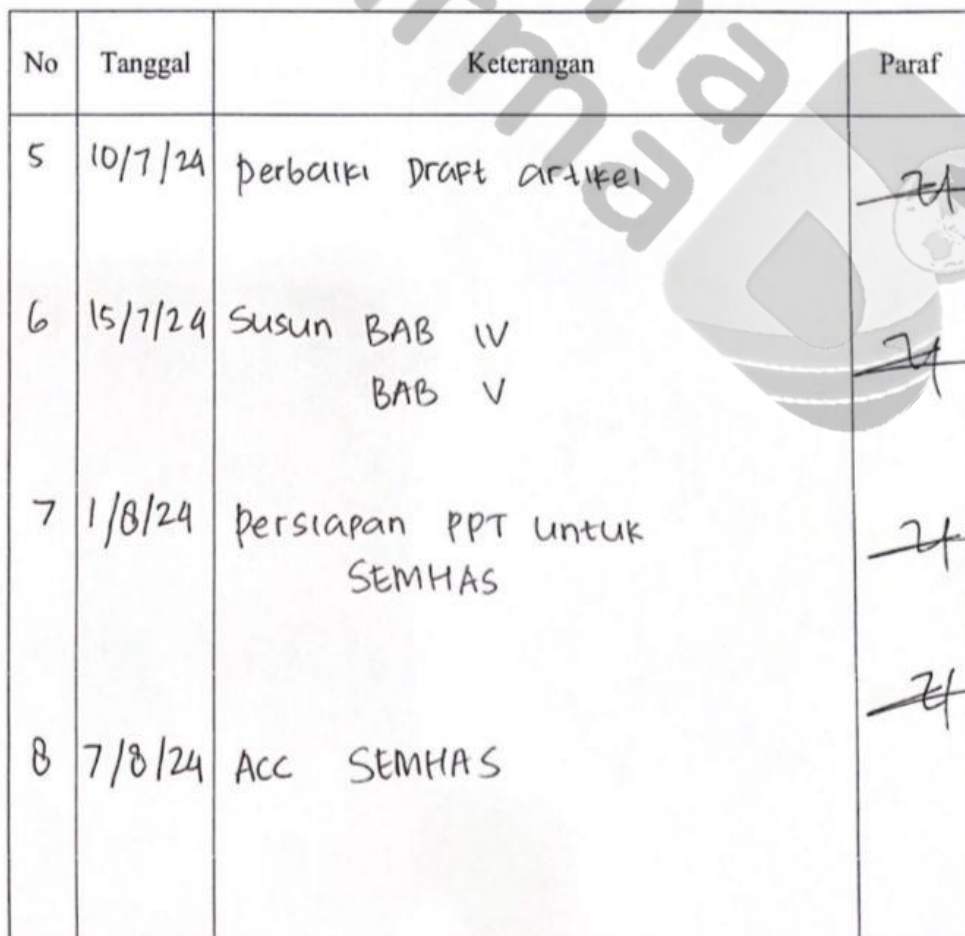 No Tanggal Keterangan Paraf
5 10/7/24 perbaiki Draft artikel
6 15/7/24 Susun BAB IV
BAB V
7 1/8/24 persiapan PPT untuk
SEMHAS
8 7/8/24 ACC SEMHAS